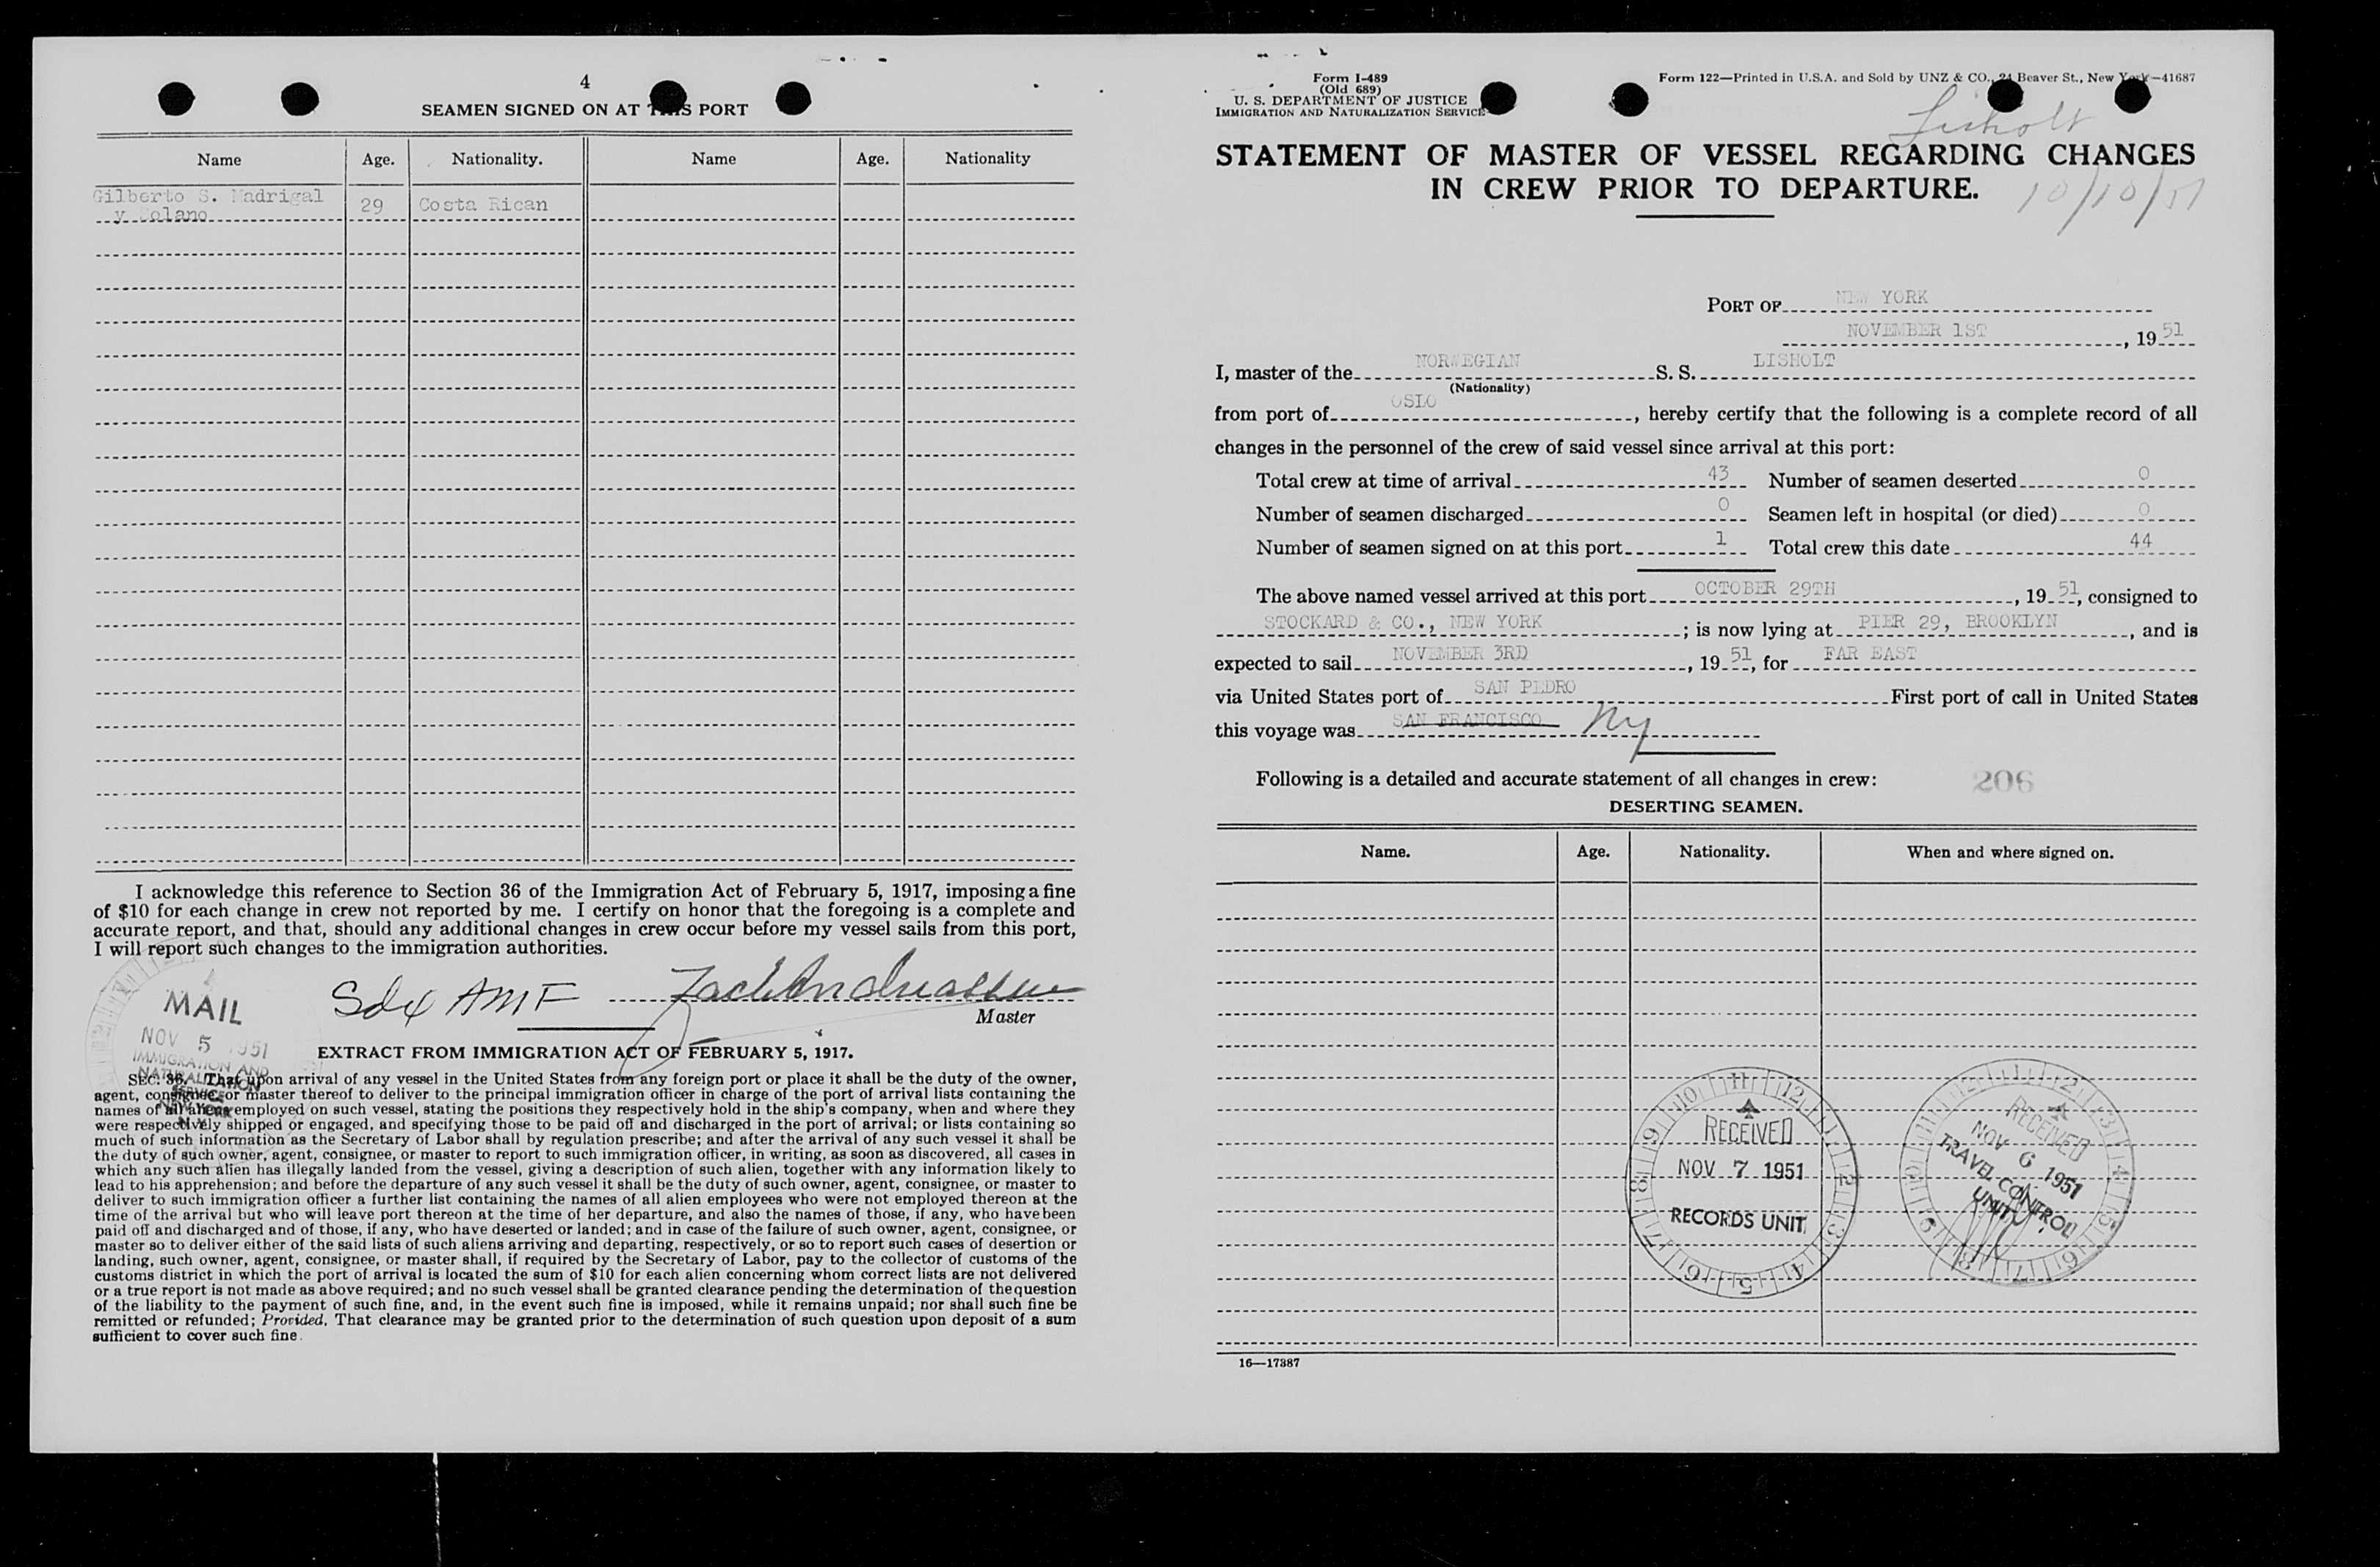 4
SEAMEN SIGNED ON AT THIS PORT
Name Age. Nationality. Name Age. Nationality
Gilberto S. Madrigal
y Solano 29 Costa Rican
I acknowledge this reference to Section 36 of the Immigration Act of February 5, 1917, imposing a fine
of $10 for each change in crew not reported by me. I certify on honor that the foregoing is a complete and
accurate report, and that, should any additional changes in crew occur before my vessel sails from this port,
I will report such changes to the immigration authorities.
MAIL
NOV 5 1951
IMMIGRATION AND
NATURALIZATION
SERVICE
AMF
Master
EXTRACT FROM IMMIGRATION ACT OF FEBRUARY 5, 1917.
SEC. 36. That upon arrival of any vessel in the United States from any foreign port or place it shall be the duty of the owner,
agent, consignee, or master thereof to deliver to the principal immigration officer in charge of the port of arrival lists containing the
names of all aliens employed on such vessel, stating the positions they respectively hold in the ship's company, when and where they
were respectively shipped or engaged, and specifying those to be paid off and discharged in the port of arrival; or lists containing so
much of such information as the Secretary of Labor shall by regulation prescribe; and after the arrival of any such vessel it shall be
the duty of such owner, agent, consignee, or master to report to such immigration officer, in writing, as soon as discovered, all cases in
which any such alien has illegally landed from the vessel, giving a description of such alien, together with any information likely to
lead to his apprehension; and before the departure of any such vessel it shall be the duty of such owner, agent, consignee, or master to
deliver to such immigration officer a further list containing the names of all alien employees who were not employed thereon at the
time of the arrival but who will leave port thereon at the time of her departure, and also the names of those, if any, who have been
paid off and discharged and of those, if any, who have deserted or landed; and in case of the failure of such owner, agent, consignee, or
master so to deliver either of the said lists of such aliens arriving and departing, respectively, or so to report such cases of desertion or
landing, such owner, agent, consignee, or master shall, if required by the Secretary of Labor, pay to the collector of customs of the
customs district in which the port of arrival is located the sum of $10 for each alien concerning whom correct lists are not delivered
or a true report is not made as above required; and no such vessel shall be granted clearance pending the determination of the question
of the liability to the payment of such fine, and, in the event such fine is imposed, while it remains unpaid; nor shall such fine be
remitted or refunded; Provided, That clearance may be granted prior to the determination of such question upon deposit of a sum
sufficient to cover such fine.
Form I-489
(Old 689)
U. S. DEPARTMENT OF JUSTICE
IMMIGRATION AND NATURALIZATION SERVICE
Form 122—Printed in U.S.A. and Sold by UNZ & CO., 24 Beaver St., New York—41687
Lisholt
STATEMENT OF MASTER OF VESSEL REGARDING CHANGES
IN CREW PRIOR TO DEPARTURE.
10/10/51
PORT OF NEW YORK
NOVEMBER 1ST, 1951
I, master of the NORWEGIAN S. S. LISHOLT
(Nationality)
from port of OSLO, hereby certify that the following is a complete record of all
changes in the personnel of the crew of said vessel since arrival at this port:
Total crew at time of arrival 43 Number of seamen deserted 0
Number of seamen discharged 0 Seamen left in hospital (or died) 0
Number of seamen signed on at this port 1 Total crew this date 44
The above named vessel arrived at this port OCTOBER 29TH, 1951, consigned to
STOCKARD & CO., NEW YORK; is now lying at PIER 29, BROOKLYN, and is
expected to sail NOVEMBER 3RD, 1951, for FAR EAST
via United States port of SAN PEDRO First port of call in United States
this voyage was SAN FRANCISCO NY
Following is a detailed and accurate statement of all changes in crew:
206
DESERTING SEAMEN.
Name. Age. Nationality. When and where signed on.
RECEIVED
NOV 7 1951
RECORDS UNIT
RECEIVED
NOV 6 1951
TRAVEL CONTROL
UNIT
16—17387